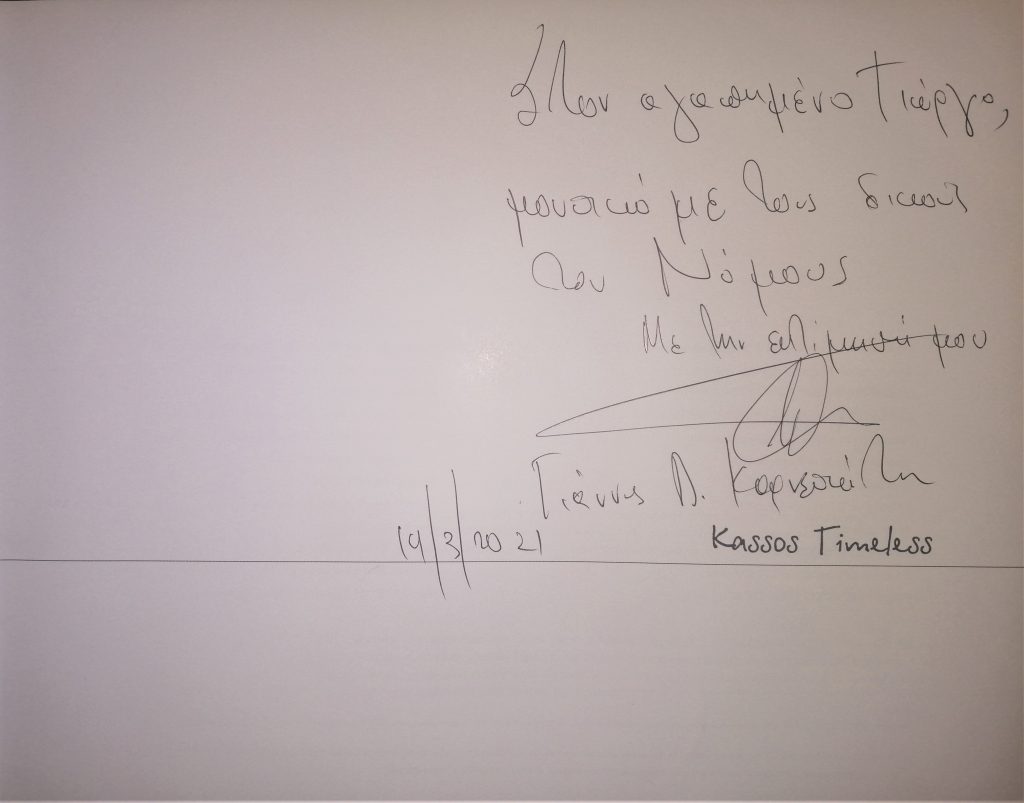 Στον αγαπημένο Γιώργο,
μουσικό με τους δικούς
του Νόμους
Με την εκτίμησή μου
Γιάννης Δ.
19/3/2021
Kassos Timeless